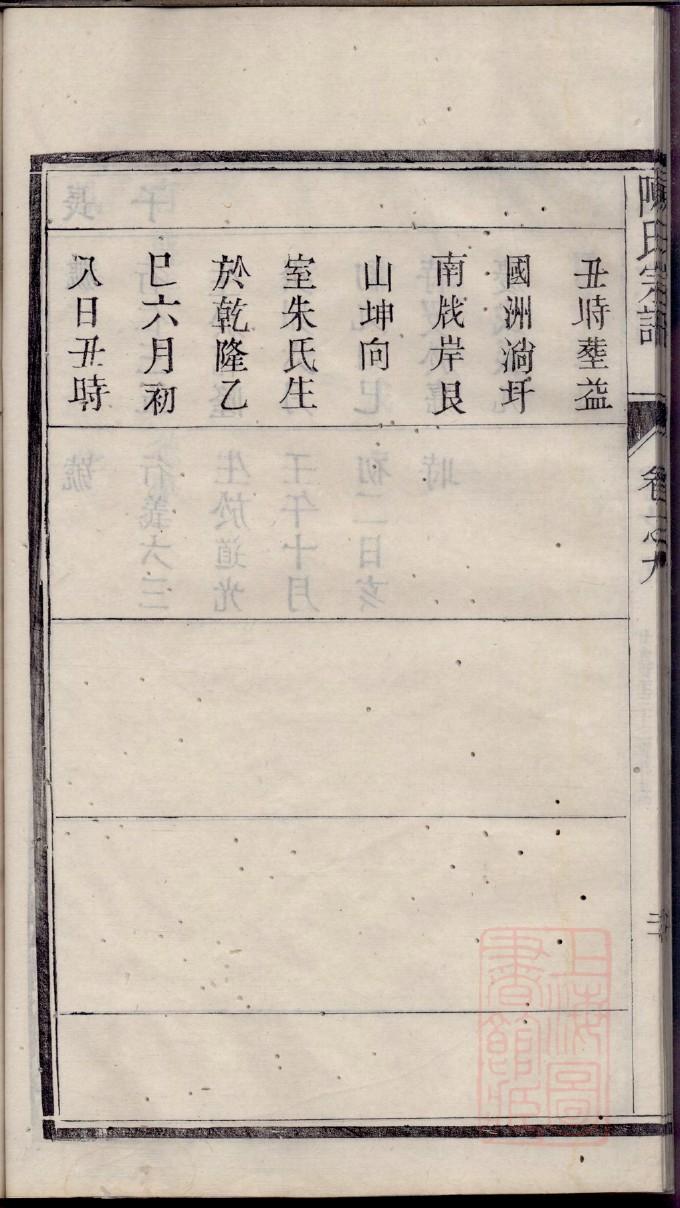 陳氏宗譜
卷之九
丑時塟益
國洲淌圩
南戙岸艮
山坤向
室朱氏生
於乾隆乙
巳六月初
八日丑時
上海圖
書館藏